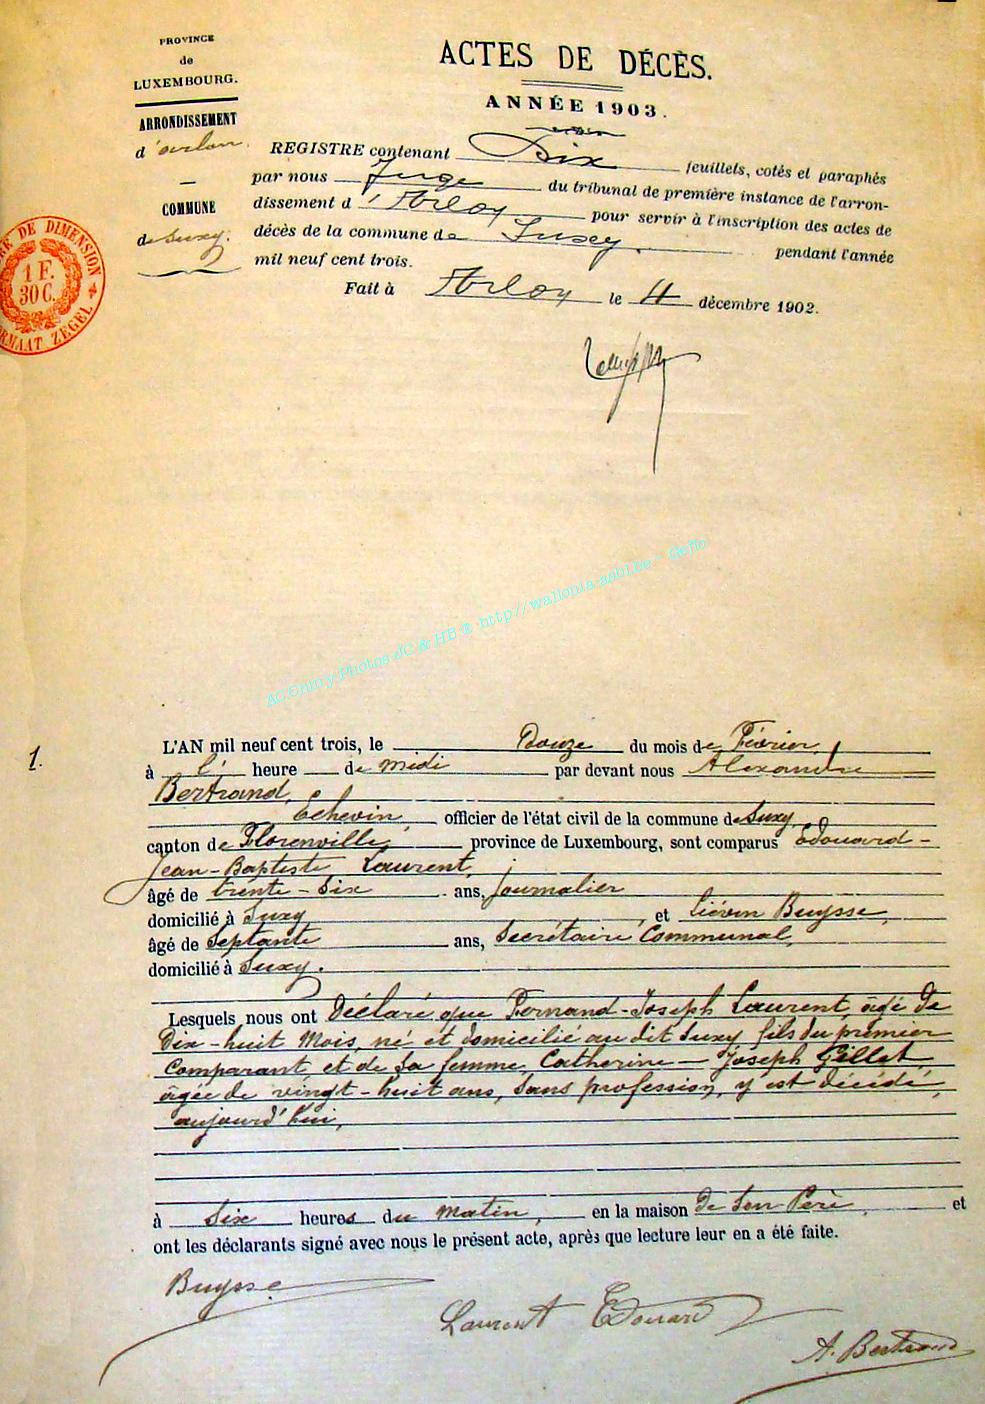 PROVINCE
de
LUXEMBOURG.
ARRONDISSEMENT
d'arlon.
COMMUNE
de Suxy.
DE DIMENSION
1 F.
30 C.
FORMAAT ZEGEL
ACTES DE DÉCÈS.
ANNÉE 1903.
REGISTRE contenant Dix feuillets, cotés et paraphés
par nous Juge du tribunal de première instance de l'arron-
dissement d'Arlon pour servir à l'inscription des actes de
décès de la commune de Suxy. pendant l'année
mil neuf cent trois.
Fait à Arlon le 4 décembre 1902.
AC Chiny Photos JC & HB ® http//wallonia-asbl.be - deflo
1.
L'AN mil neuf cent trois, le Douze du mois de Février,
à l' heure de midi par devant nous Alexandre
Bertrand,
Echevin, officier de l'état civil de la commune de Suxy
canton de Florenville, province de Luxembourg, sont comparus Edouard-
Jean-Baptiste Laurent,
âgé de trente-six ans, journalier
domicilié à Suxy, et Liévin Buysse,
âgé de Septante ans, Secrétaire Communal,
domicilié à Suxy.
Lesquels nous ont Déclaré que Fernand-Joseph Laurent, âgé de
Dix-huit Mois, né et domicilié au dit Suxy fils du premier
Comparant et de Sa femme, Catherine-Joseph Gillet,
âgée de vingt-huit ans, Sans profession, y est décédé,
aujourd'hui,
à Six heures du Matin, en la maison de Son Père, et
ont les déclarants signé avec nous le présent acte, après que lecture leur en a été faite.
Buysse
Laurent Edouard
A. Bertrand